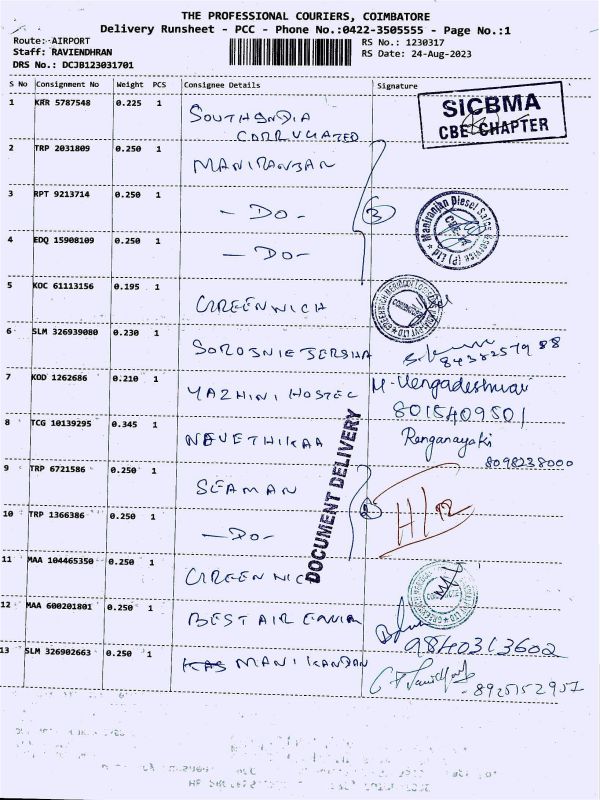 THE PROFESSIONAL COURIERS, COIMBATORE
Delivery Runsheet - PCC - Phone No.:0422-3505555 - Page No.:1
Route: AIRPORT RS No.: 1230317
Staff: RAVIENDHRAN RS Date: 24-Aug-2023
DRS No.: DCJB123031701
S No Consignment No Weight PCS Consignee Details Signature
1 KRR 5787548 0.225 1 SOUTH INDIA
CORRUGATED
SICBMA
CBE CHAPTER
2 TRP 2031809 0.250 1 MANIRANJAN
3 RPT 9213714 0.250 1 - DO - 3
Maniranjan Diesel Sales
4 EDQ 15908109 0.250 1 - DO -
5 KOC 61113156 0.195 1 GREENWICH
6 SLM 326939080 0.230 1 84382579 88
7 KOD 1262686 0.210 1 YAZHINI HOSTEL M. Vengadeshwari
8015409501
8 TCG 10139295 0.345 1 NEVETHIKAA Renganayaki
8098238000
DOCUMENT DELIVERY
9 TRP 6721586 0.250 1 SEAMAN
10 TRP 1366386 0.250 1 - DO -
11 MAA 104465350 0.250 1 GREENWICH
12 MAA 600201801 0.250 1 BEST AIR
9840313602
13 SLM 326902663 0.250 1 MANIKANDAN
- 8925152957